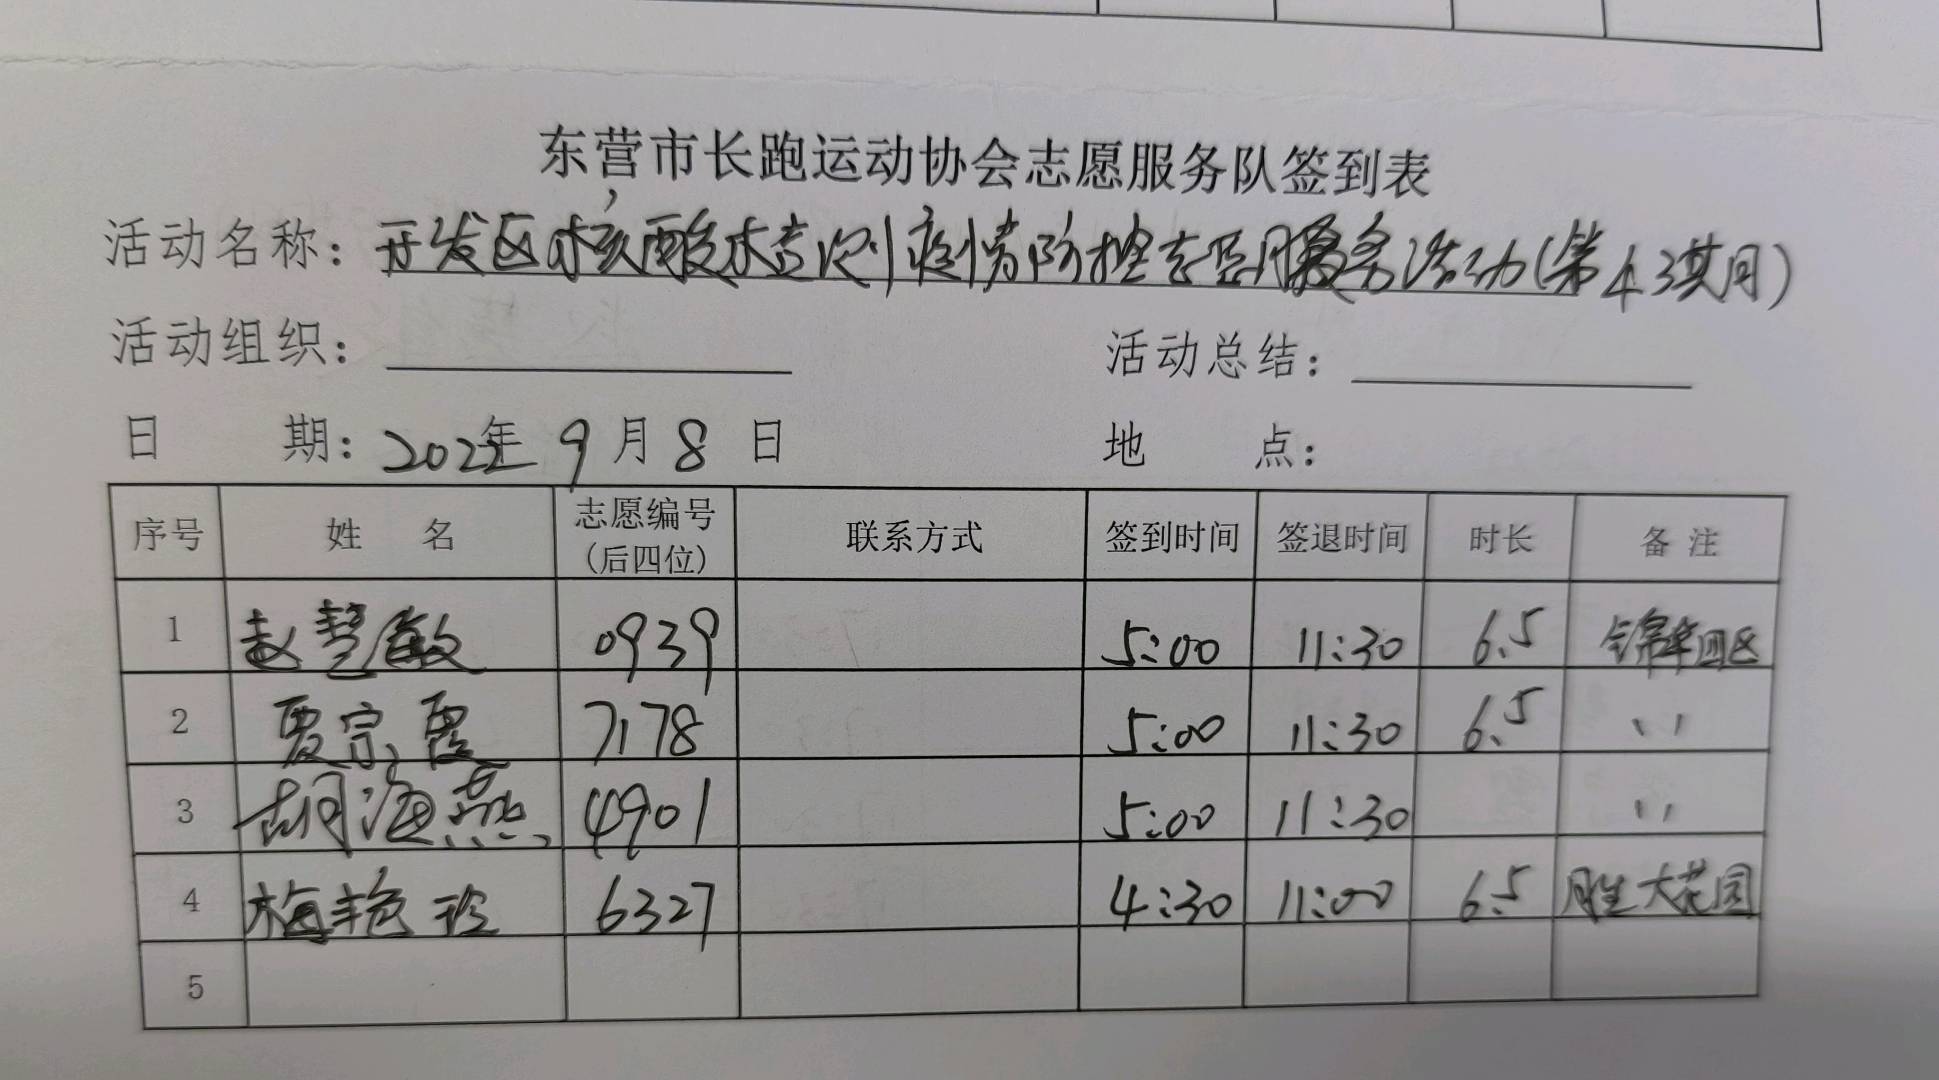 东营市长跑运动协会志愿服务队签到表
活动名称：开发区核酸检测疫情防控志愿服务活动（第43期）
活动组织：
活动总结：
日 期：2022年 9 月 8 日
地 点：
序号 姓 名 志愿编号（后四位） 联系方式 签到时间 签退时间 时长 备 注
1 赵慧敏 0939 5:00 11:30 6.5 锦华四区
2 贾宗霞 7178 5:00 11:30 6.5 〃
3 胡海燕 4901 5:00 11:30 〃
4 梅艳玲 6327 4:30 11:00 6.5 胜大花园
5